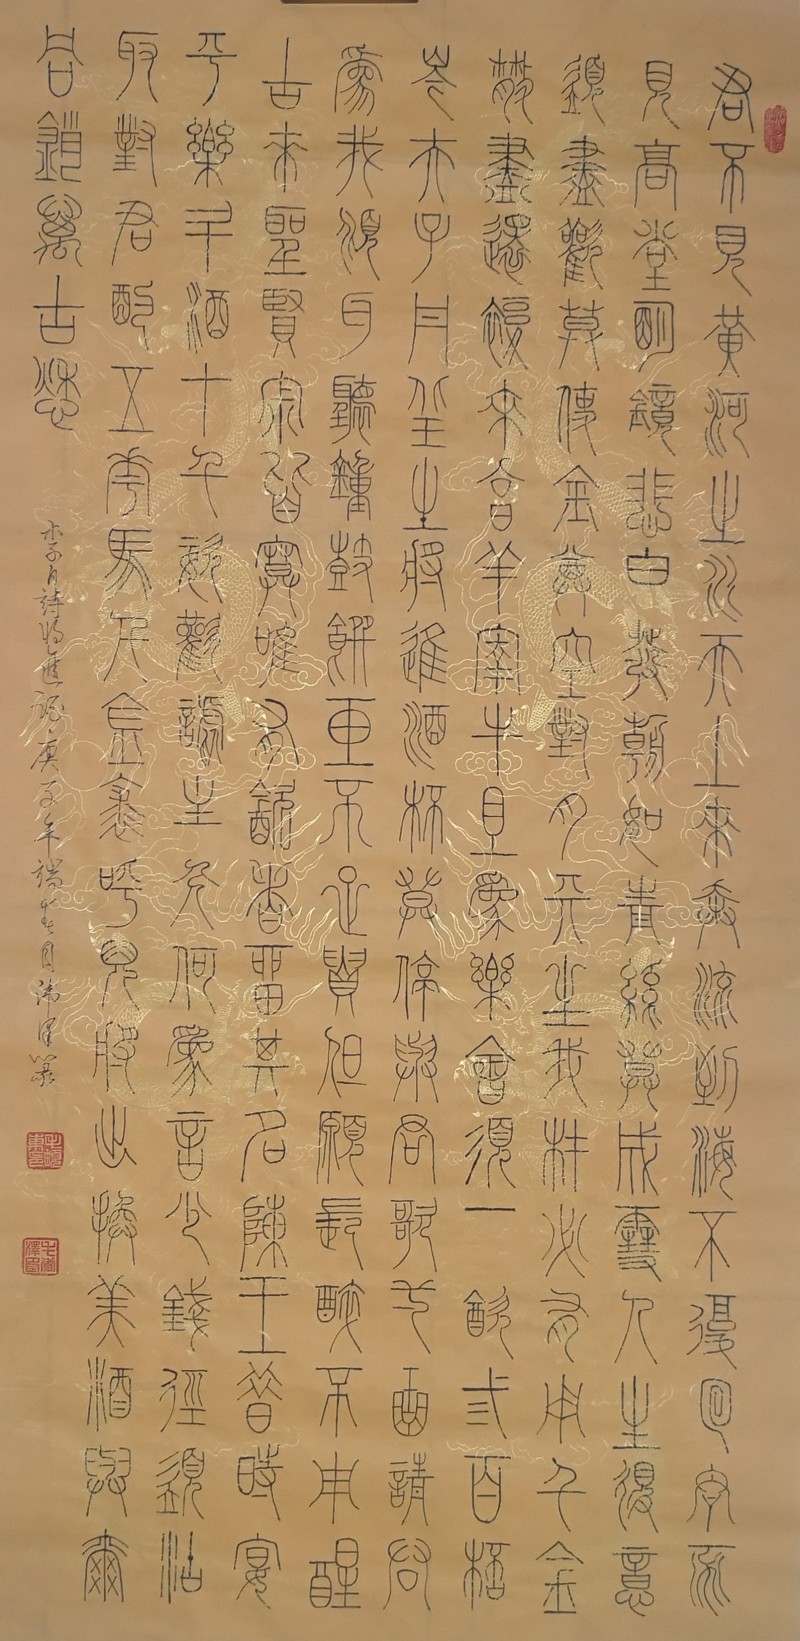 君不見黃河之水天上來奔流到海不復回君不
見高堂明鏡悲白發朝如青絲莫成雪人生得意
須盡歡莫使金尊空對月天生我材必有用千金
散盡還復來烹羊宰牛且為樂會須一飲三百杯
岑夫子丹丘生將進酒杯莫停與君歌一曲請君
為我傾耳聽鐘鼓饌玉不足貴但願長醉不用醒
古來聖賢寂皆寞唯有飲者留其名陳王昔時宴
平樂斗酒十千恣歡謔主人何為言少錢徑須沽
取對君酌五花馬千金裘呼兒將出換美酒與爾
同銷萬古愁
李白詩將進酒庚子年端春月